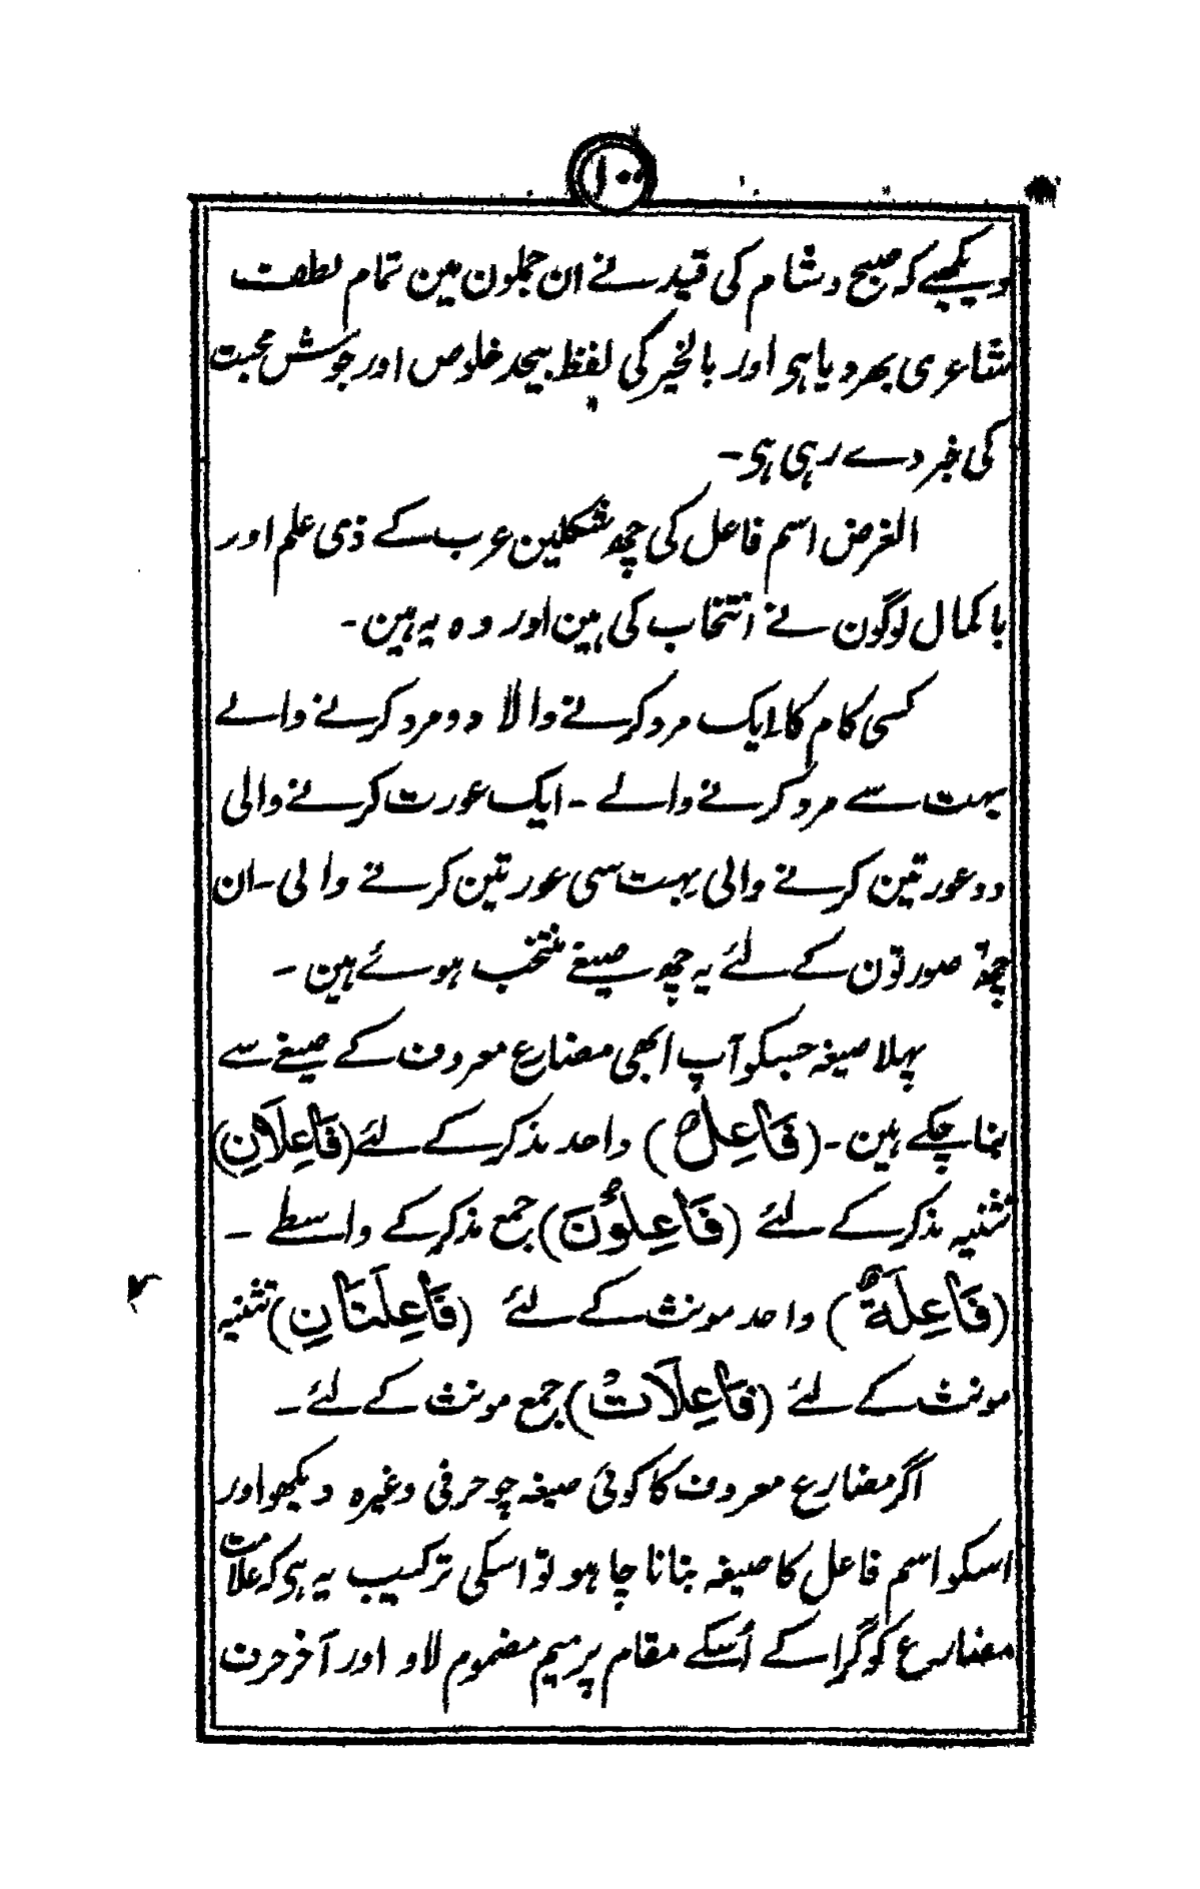 ۱۰۰
دیکھیے کہ صبح و شام کی قید نے ان جملون مین تمام لطف
شاعری بھر دیا ہی اور بالخیر کی لفظ بیحد خلوص اور جوش محبت
کی خبر دے رہی ہی۔
الغرض اسم فاعل کی چھ شکلین عرب کے ذی علم اور
باکمال لوگون نے انتخاب کی ہین اور وہ یہ ہین۔
کسی کام کا ایک مرد کرنے والا دو مرد کرنے والے
بہت سے مرد کرنے والے ۔ ایک عورت کرنے والی
دو عورتین کرنے والی بہت سی عورتین کرنے والی ۔ ان
چھ صورتون کے لئے یہ چھ صیغے منتخب ہوئے ہین ۔
پہلا صیغہ جسکو آپ ابھی مضارع معروف کے صیغے سے
بنا چکے ہین ۔ (فَاعِلٌ) واحد مذکر کے لئے (فَاعِلَانِ)
تثنیہ مذکر کے لئے (فَاعِلُوْنَ) جمع مذکر کے واسطے ۔
(فَاعِلَةٌ) واحد مونث کے لئے (فَاعِلَتَانِ) تثنیہ
مونث کے لئے (فَاعِلَاتٌ) جمع مونث کے لئے ۔
اگر مضارع معروف کا کوئی صیغہ چو حرفی وغیرہ دیکھو اور
اسکو اسم فاعل کا صیغہ بنانا چاہو تو اسکی ترکیب یہ ہی کہ علامت
مضارع کو گرا کے اُسکے مقام پر میم مضموم لاو اور آخر حرف